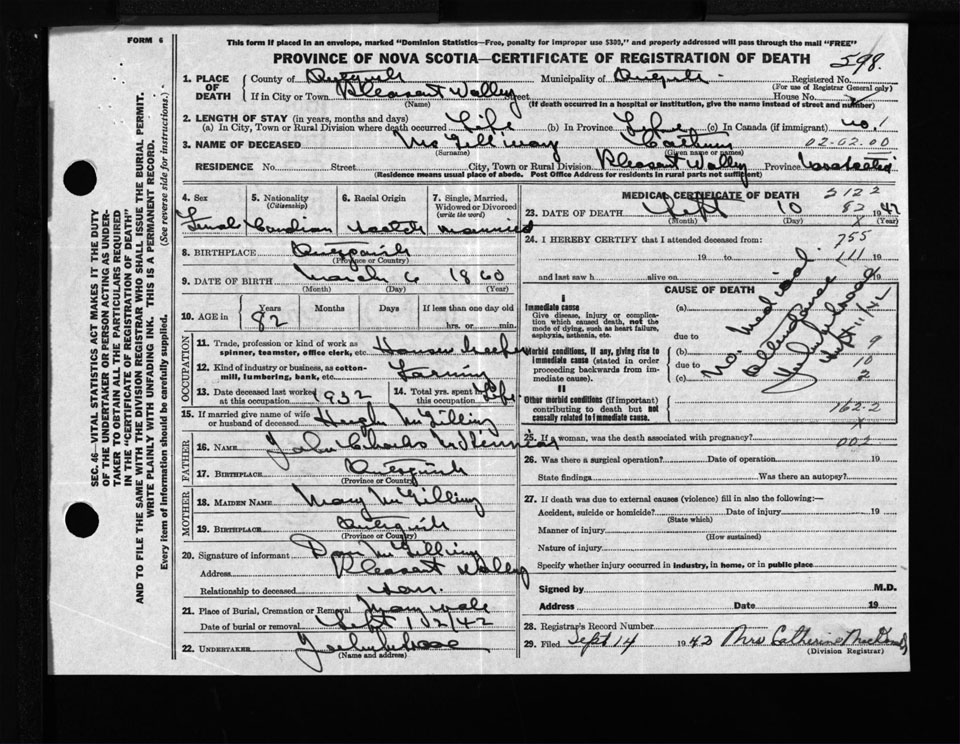 FORM 6
This form if placed in an envelope, marked "Dominion Statistics—Free, penalty for improper use $300," and properly addressed will pass through the mail "FREE"
PROVINCE OF NOVA SCOTIA—CERTIFICATE OF REGISTRATION OF DEATH
598.
SEC. 46—VITAL STATISTICS ACT MAKES IT THE DUTY
OF THE UNDERTAKER OR PERSON ACTING AS UNDER-
TAKER TO OBTAIN ALL THE PARTICULARS REQUIRED
IN THE "CERTIFICATE OF REGISTRATION OF DEATH"
AND TO FILE THE SAME WITH THE DIVISION REGISTRAR WHO SHALL ISSUE THE BURIAL PERMIT.
WRITE PLAINLY WITH UNFADING INK. THIS IS A PERMANENT RECORD.
Every item of Information should be carefully supplied. (See reverse side for instructions.)
1. PLACE OF DEATH
County of Municipality of Registered No.
(For use of Registrar General only)
If in City or Town Pleasant Valley Street House No.
(Name) (If death occurred in a hospital or institution, give the name instead of street and number)
2. LENGTH OF STAY (in years, months and days)
(a) In City, Town or Rural Division where death occurred Life (b) In Province Life (c) In Canada (if immigrant) no. 1
3. NAME OF DECEASED 02-02.00
(Surname) (Given name or names)
RESIDENCE No. Street City, Town or Rural Division Pleasant Valley Province
(Residence means usual place of abode. Post Office Address for residents in rural parts not sufficient)
4. Sex 5. Nationality (Citizenship) 6. Racial Origin 7. Single, Married, Widowed or Divorced (write the word)
Married
8. BIRTHPLACE
(Province or Country)
9. DATE OF BIRTH March 6 1860
(Month) (Day) (Year)
10. AGE in Years Months Days If less than one day old
82 hrs. or min.
OCCUPATION
11. Trade, profession or kind of work as spinner, teamster, office clerk, etc. House keeper
12. Kind of industry or business, as cotton-mill, lumbering, bank, etc. Farming
13. Date deceased last worked at this occupation 1932 14. Total yrs. spent in this occupation Life
15. If married give name of wife or husband of deceased Hugh
FATHER
16. NAME John Charles
17. BIRTHPLACE
(Province or Country)
MOTHER
18. MAIDEN NAME Mary
19. BIRTHPLACE
(Province or Country)
20. Signature of informant
Address Pleasant Valley
Relationship to deceased son.
21. Place of Burial, Cremation or Removal
Date of burial or removal Sept 12/42
22. UNDERTAKER
(Name and address)
MEDICAL CERTIFICATE OF DEATH
5122
23. DATE OF DEATH Sept 10 82 1942
(Month) (Day) (Year)
24. I HEREBY CERTIFY that I attended deceased from:
755
19 to 111 19
and last saw h alive on 19
CAUSE OF DEATH
I
Immediate cause
Give disease, injury or complication which caused death, not the mode of dying, such as heart failure, asphyxia, asthenia, etc.
(a)
due to
Morbid conditions, if any, giving rise to immediate cause (stated in order proceeding backwards from immediate cause).
(b) 9
due to 10
(c) 2
No. Medical
attendance
II
Other morbid conditions (if important) contributing to death but not causally related to immediate cause.
162-2
x
25. If a woman, was the death associated with pregnancy? 002
26. Was there a surgical operation? Date of operation 19
State findings Was there an autopsy?
27. If death was due to external causes (violence) fill in also the following:—
Accident, suicide or homicide? Date of injury 19
(State which)
Manner of injury
(How sustained)
Nature of injury
Specify whether injury occurred in industry, in home, or in public place
Signed by M.D.
Address Date 19
28. Registrar's Record Number
29. Filed Sept 14 1942 Mrs Catherine
(Division Registrar)